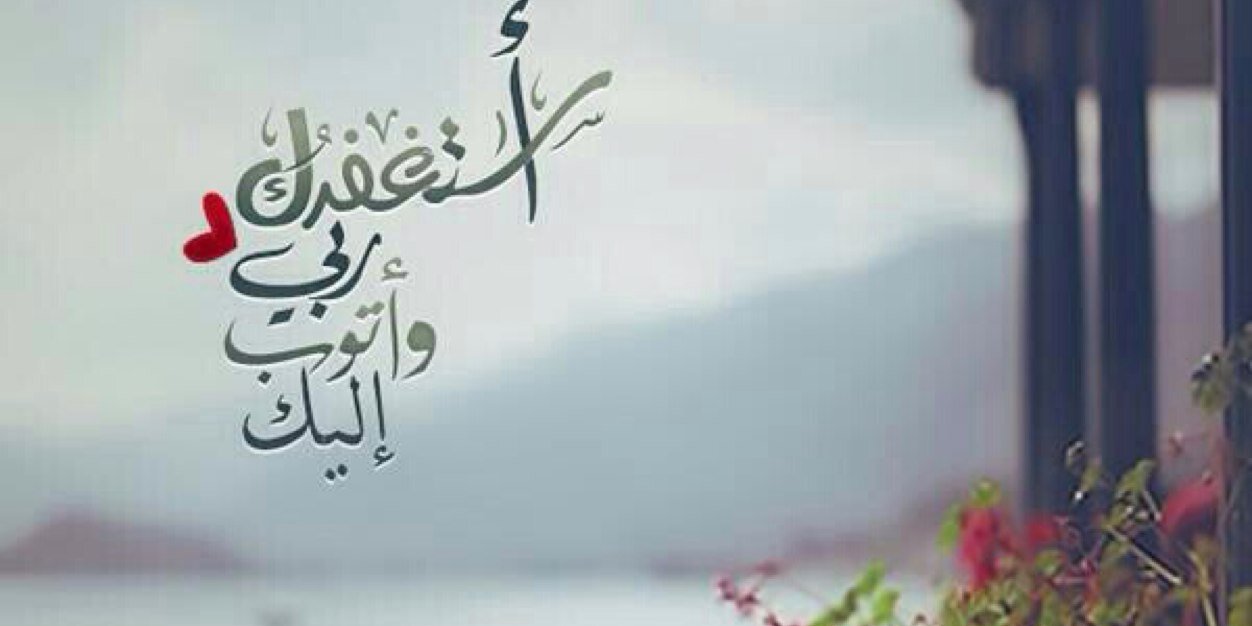 أستغفرُك
ربي
وأتوب
إليك